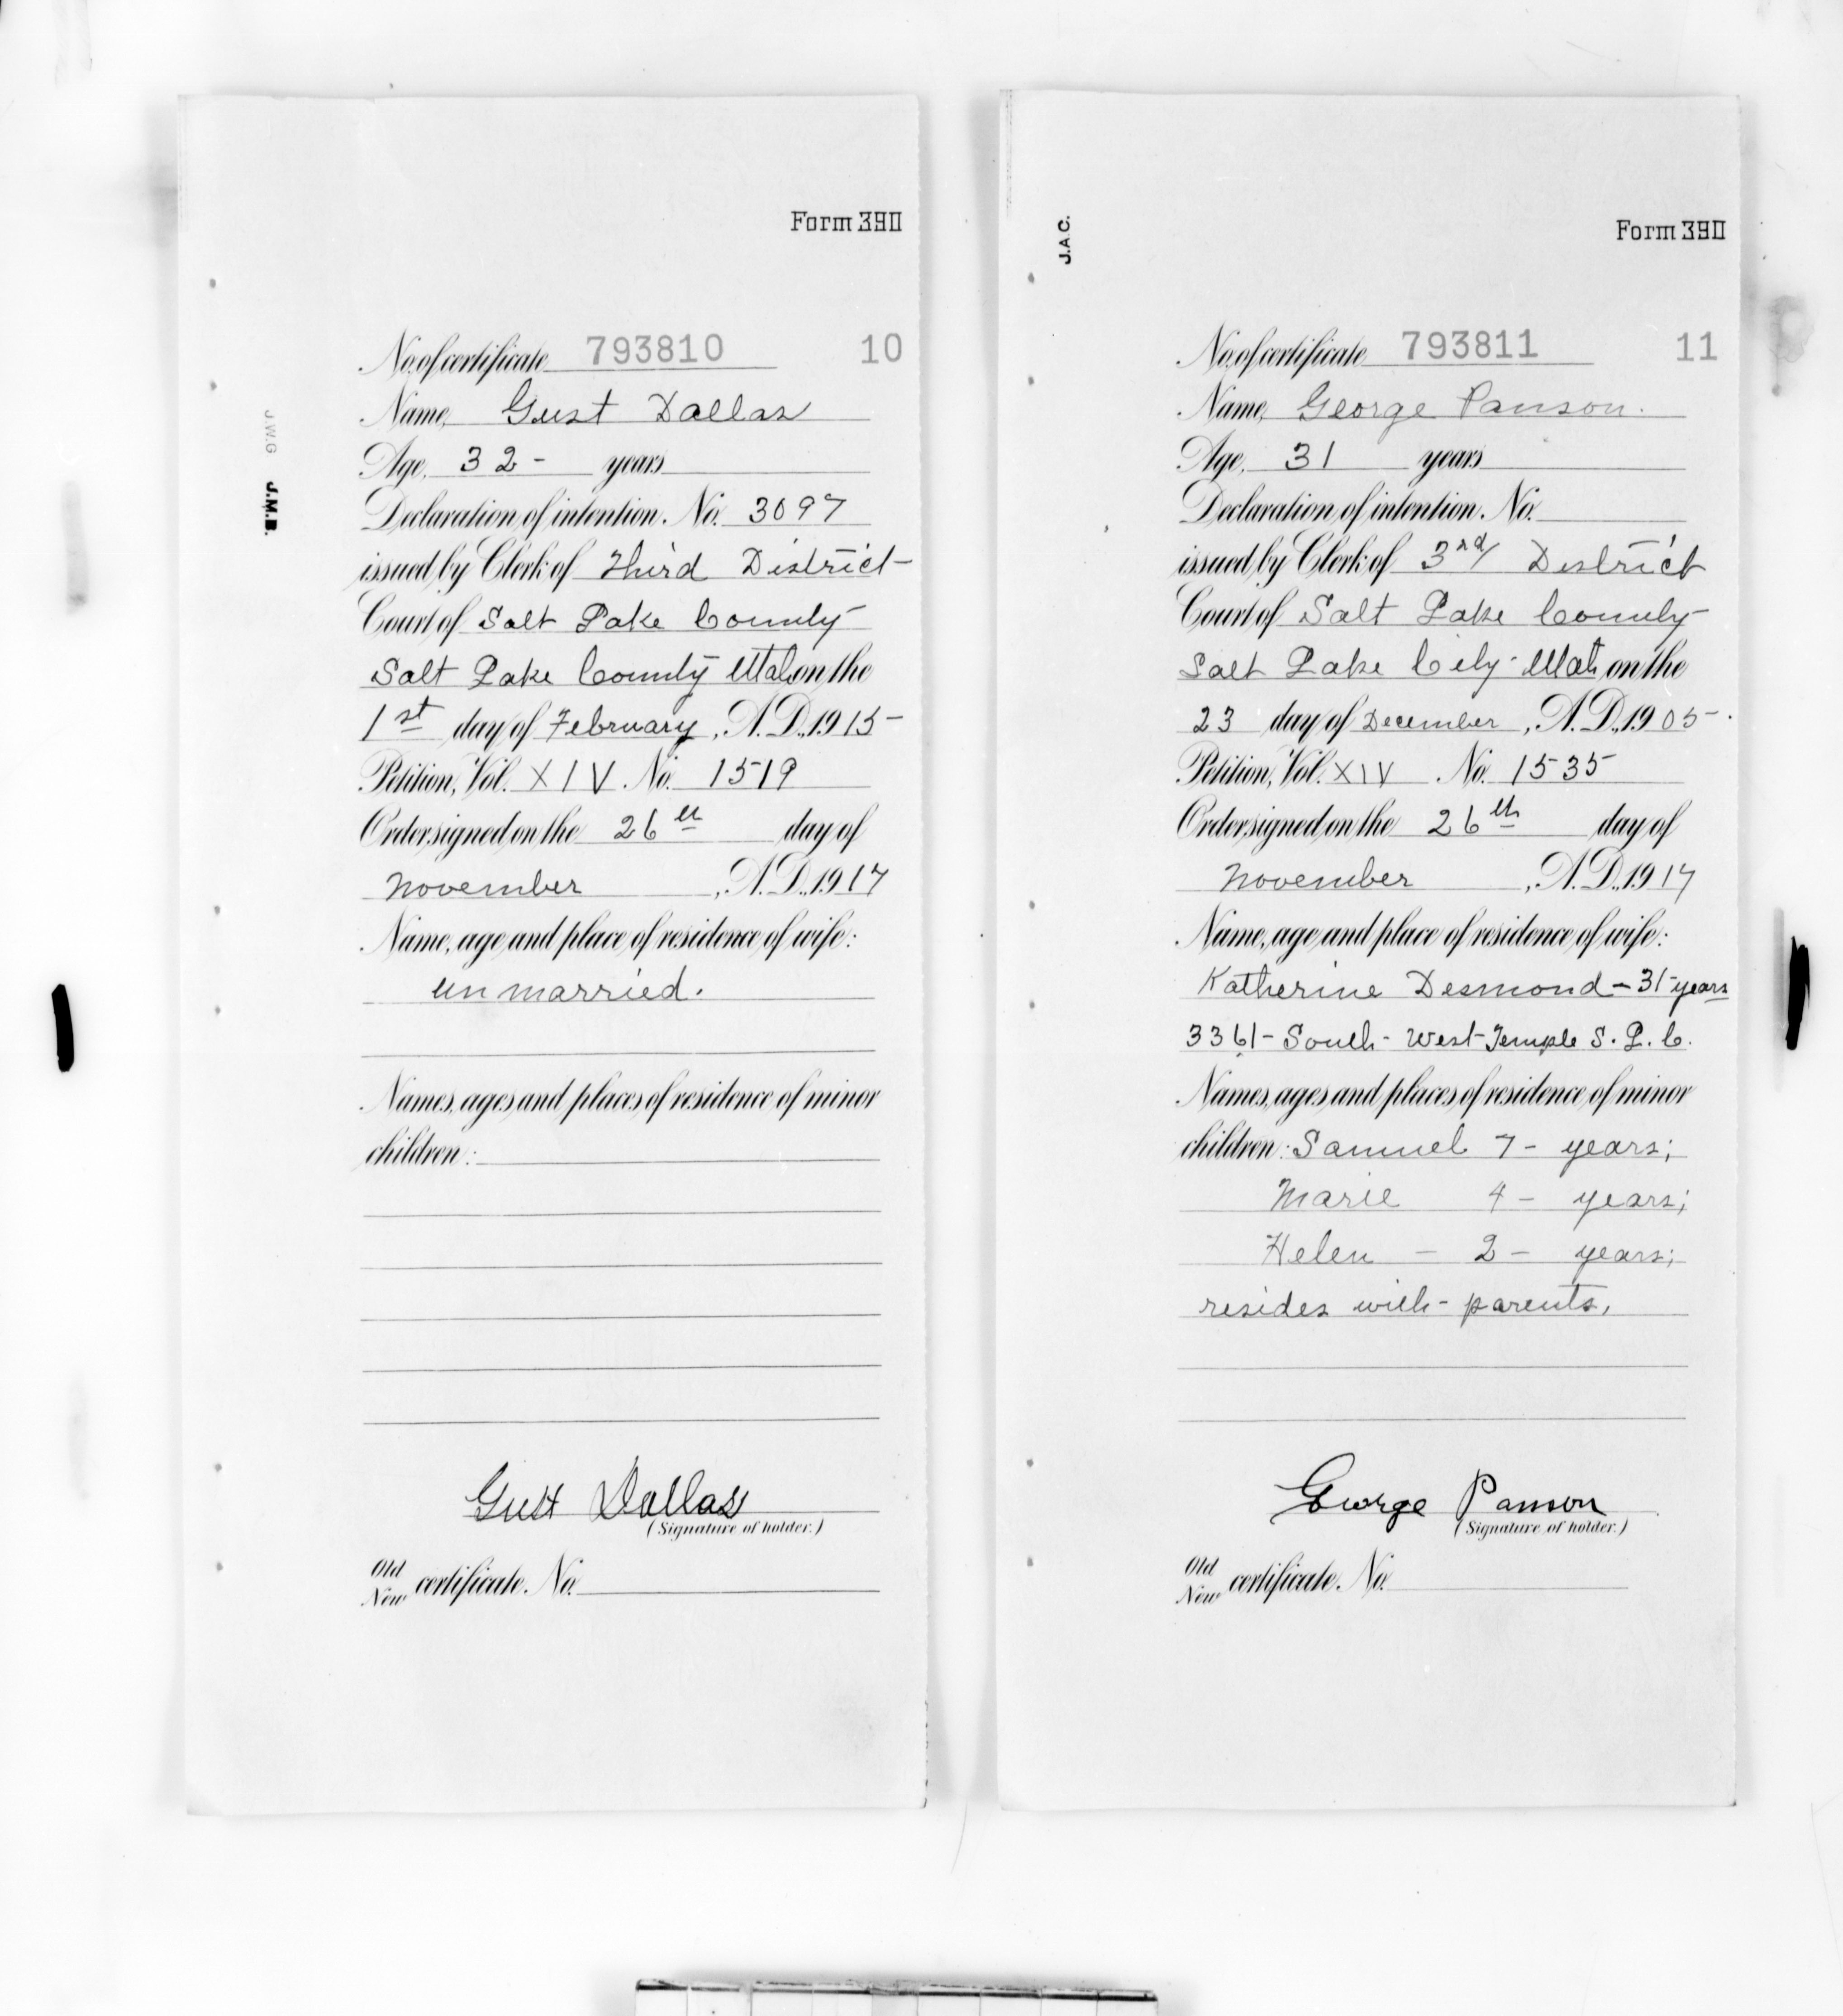 Form 390
No. of certificate 793810 10
Name, Gust Dallas
Age, 32 - years
Declaration of intention. No. 3097
issued by Clerk of Third District
Court of Salt Lake County
Salt Lake County Utah on the
1st day of February, A.D., 1915
Petition, Vol. XIV No. 1519
Order signed on the 26th day of
November, A.D., 1917
Name, age and place of residence of wife:
unmarried.
Names, ages and places of residence of minor
children:
Gust Dallas
(Signature of holder.)
Old
New certificate. No.
J.W.G J.M.B.
J.A.C.
Form 390
No. of certificate 793811 11
Name, George Panson.
Age, 31 years
Declaration of intention. No.
issued by Clerk of 3rd District
Court of Salt Lake County
Salt Lake City Utah on the
23 day of December, A.D., 1905
Petition, Vol. XIV No. 1535
Order signed on the 26th day of
November, A.D., 1917
Name, age and place of residence of wife:
Katherine Desmond - 31 years
3361 - South - West Temple S. L. C.
Names, ages and places of residence of minor
children: Samuel 7 - years;
Marie 4 - years;
Helen - 2 - years;
resides with parents,
George Panson
(Signature of holder.)
Old
New certificate. No.